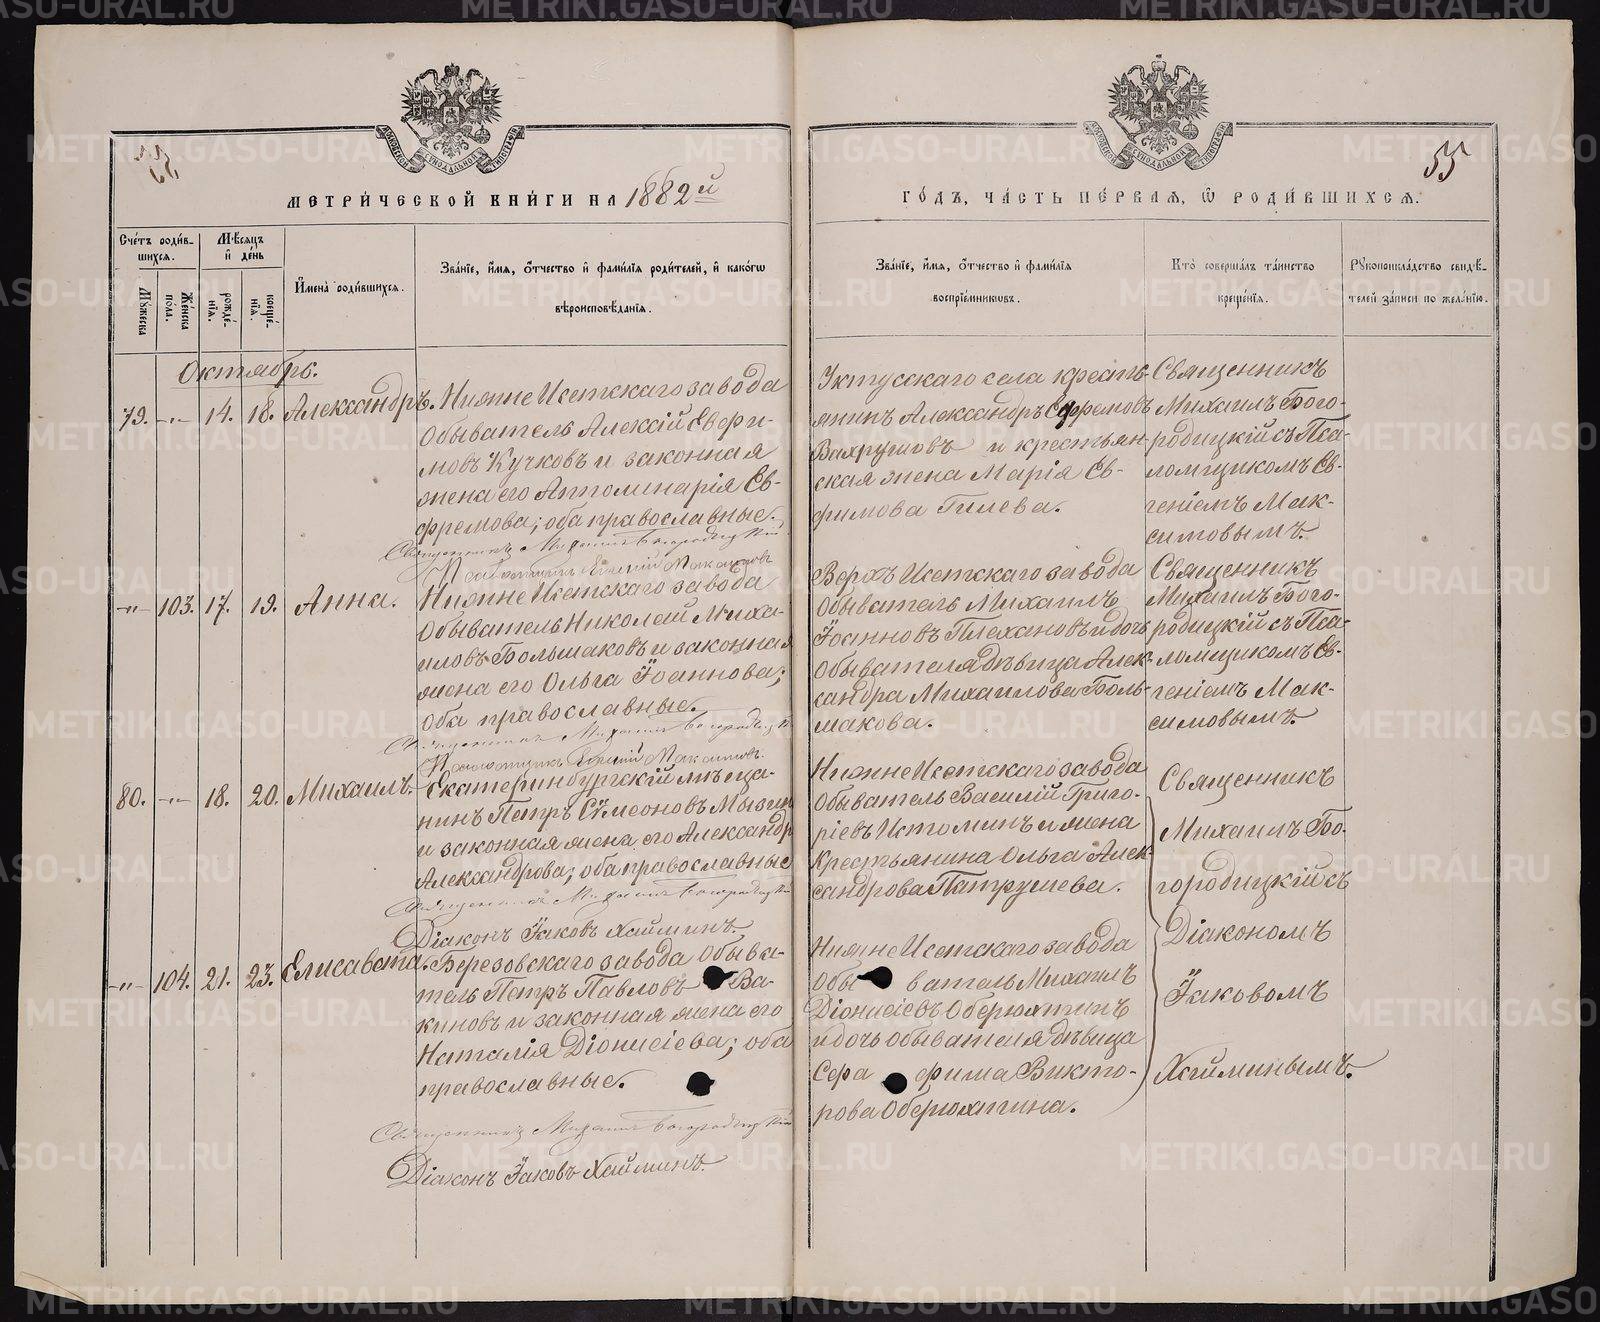 МЕТРИ́ЧЕСКОЙ КНИ́ГИ НА 1882 й
ГО́ДЪ, ЧА́СТЬ ПЕ́РВАѦ, Ѽ РОДИ́ВШИХСѦ.
55
Сче́тъ роди́в-
шихсѧ.
Мꙋ́жеска
Же́нска
по́ла.
Мѣ́сѧцъ
и҆ де́нь
рожде́-
нїѧ.
креще́-
нїѧ.
И҆мена̀ роди́вшихсѧ.
Зва́нїе, и҆́мѧ, ѻ҆́тчество и҆ фами́лїѧ роди́телей, и҆ како́гѡ
вѣроисповѣ́данїѧ.
Зва́нїе, и҆́мѧ, ѻ҆́тчество и҆ фами́лїѧ
воспрїе́мникѡвъ.
Кто̀ соверша́лъ та́инство
креще́нїѧ.
Рꙋкоприкла́дство свидѣ́-
телей за́писи по жела́нїю.
Октябрь.
79. -„- 14. 18. Александръ.
Нижне Исетскаго завода
обыватель Алексій Евфи-
мовъ Кучковъ и законная
жена его Апполинарія Ев-
фремова; оба православные.
Священникъ Михаилъ Богородицкій
Псаломщикъ Евгеній Максимовъ
Уктусскаго села кресть-
янинъ Александръ Ефремовъ
Вахрушовъ и крестьян-
ская жена Марія Ев-
фимова Гилева.
Священникъ
Михаилъ Бого-
родицкій съ Пса-
ломщикомъ Ев-
геніемъ Мак-
симовымъ.
-„- 103. 17. 19. Анна.
Нижне Исетскаго завода
обыватель Николай Миха-
иловъ Большаковъ и законная
жена его Ольга Іоаннова;
оба православные.
Священникъ Михаилъ Богородицкій
Псаломщикъ Евгеній Максимовъ.
Верхъ Исетскаго завода
обыватель Михаилъ
Іоанновъ Плехановъ и дочь
обывателя дѣвица Алек-
сандра Михаилова Боль-
шакова.
Священникъ
Михаилъ Бого-
родицкій съ Пса-
ломщикомъ Ев-
геніемъ Мак-
симовымъ.
80. -„- 18. 20. Михаилъ.
Екатеринбургскій мѣща-
нинъ Петръ Сѵмеоновъ
и законная жена его
Александрова; оба православные
Священникъ Михаилъ Богородицкій
Діаконъ Іаковъ Хайминъ.
Нижне Исетскаго завода
обыватель Василій Григо-
ріевъ Истоминъ и жена
крестьянина Ольга Алек-
сандрова Патрушева.
Священникъ
Михаилъ Бо-
городицкій съ
Діакономъ
Іаковомъ
Хайминымъ.
-„- 104. 21. 23. Елисавета.
Березовскаго завода обыва-
тель Петръ Павловъ Ва-
киновъ и законная жена его
Наталія Діонисіева; оба
православные.
Священникъ Михаилъ Богородицкій
Діаконъ Іаковъ Хайминъ.
Нижне Исетскаго завода
обыватель Михаилъ
Діонисіевъ Оберюхтинъ
и дочь обывателя дѣвица
Серафима Викто-
рова Оберюхтина.
METRIKI.GASO-URAL.RU